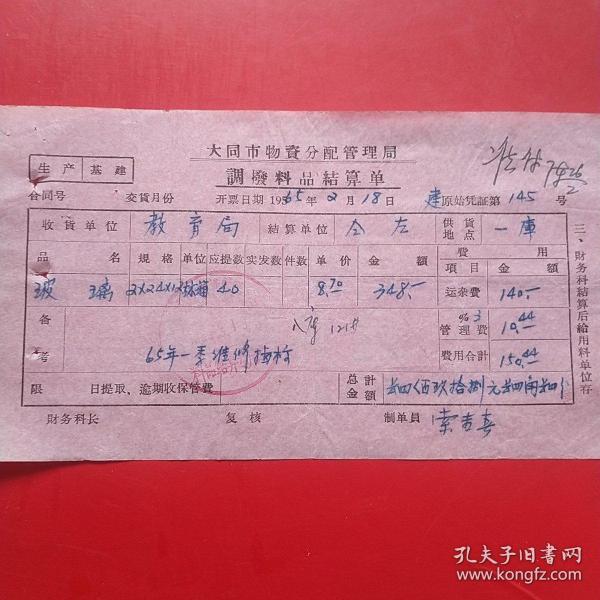 大同市物資分配管理局
生产 基建
調撥料品結算单
合同号 交貨月份 开票日期 1965年2月18日 建原始凭証第145号
收貨单位 教育局 結算单位 仝左 供貨地点 一庫
品名 規格 单位 应提数 实发数 件数 单价 金額 費用
項目 金額
玻璃 2X24X12 标箱 40 8.70 348.- 运杂費 140.-
备考 %3 管理費 10.44
65年一季維修指标 費用合計 150.44
限 日提取、逾期收保管費 总計金額 肆佰玖拾捌元肆角肆分
財务科长 复核 制单員
三、財务科結算后給用料单位存
孔夫子旧书网
www.kongfz.com